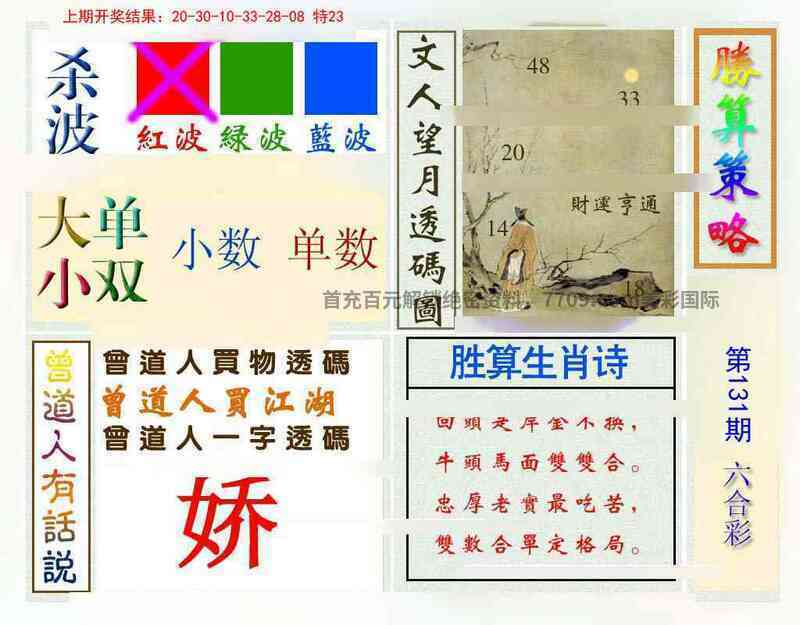 上期开奖结果：20-30-10-33-28-08 特23
杀波
紅波 綠波 藍波
大单小双
小数 单数
文人望月透碼圖
48
33
20
財運亨通
14
18
勝算策略
首充百元解锁绝密资料，7709
彩国际
曾道人有話説
曾道人買物透碼
曾道人買江湖
曾道人一字透碼
娇
胜算生肖诗
回頭是岸金不換，
牛頭馬面雙雙合。
忠厚老實最吃苦，
雙數合單定格局。
第131期 六合彩